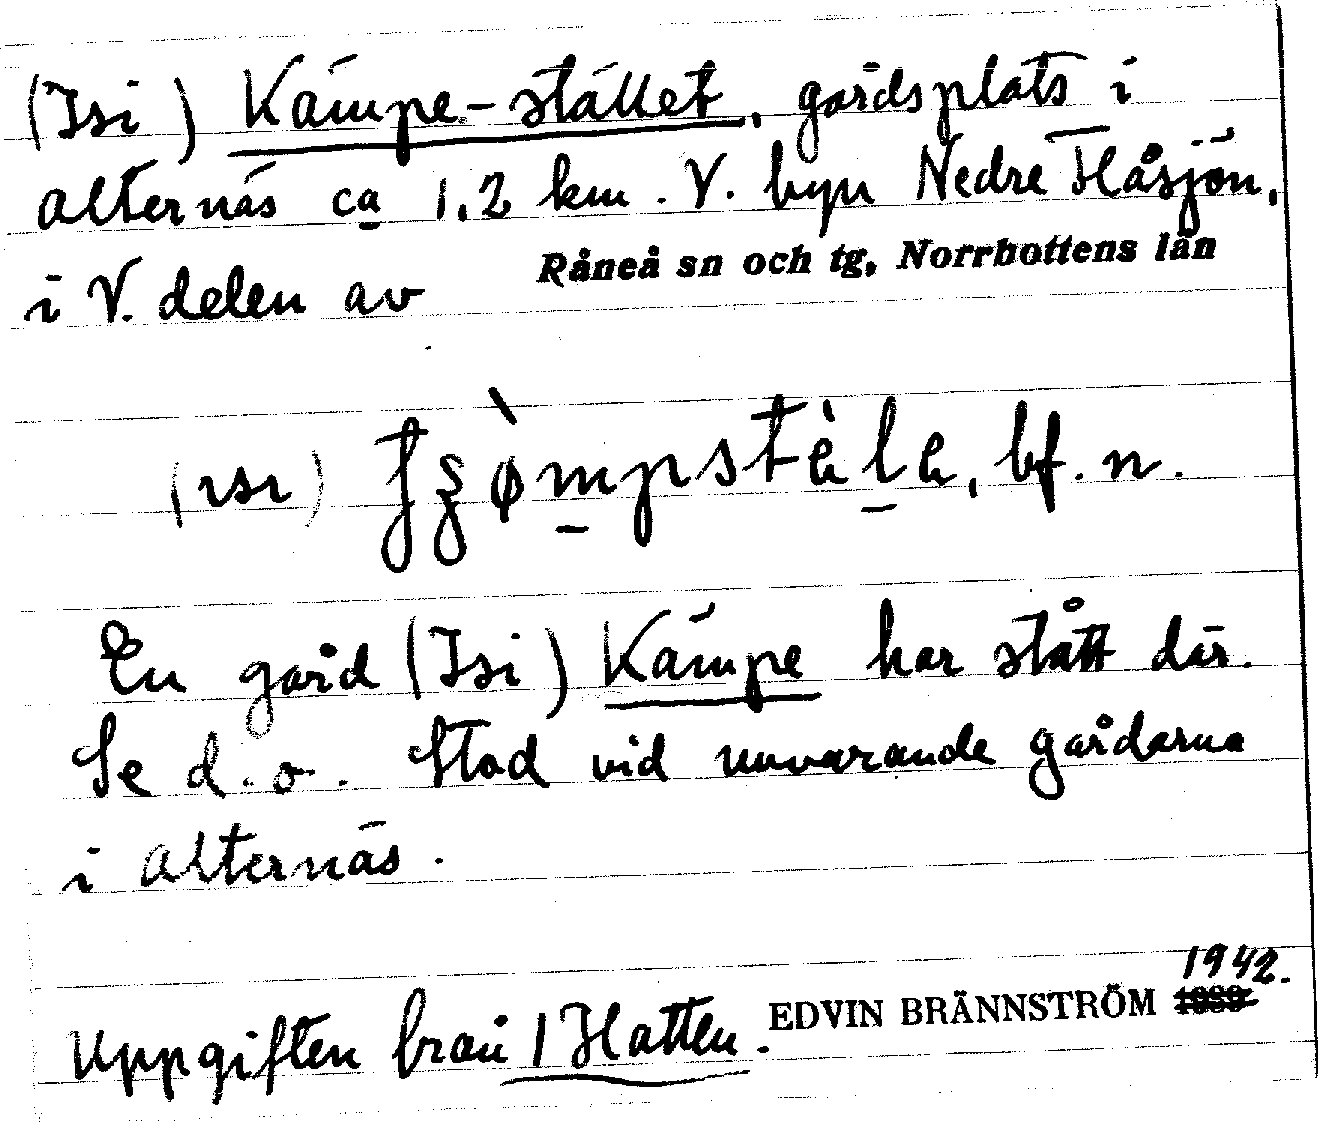 (Isi) Kämpe-stället, gårdsplats i
Alternäs ca 1,2 km. V. byn Nedre Flåsjön,
i V. delen av Råneå sn och tg, Norrbottens län
bf. n.
En gård (Isi) Kämpe har stått där.
Se d. o. Stod vid nuvarande gårdarna
i Alternäs.
Uppgiften från 1 Hatten. EDVIN BRÄNNSTRÖM 1942.